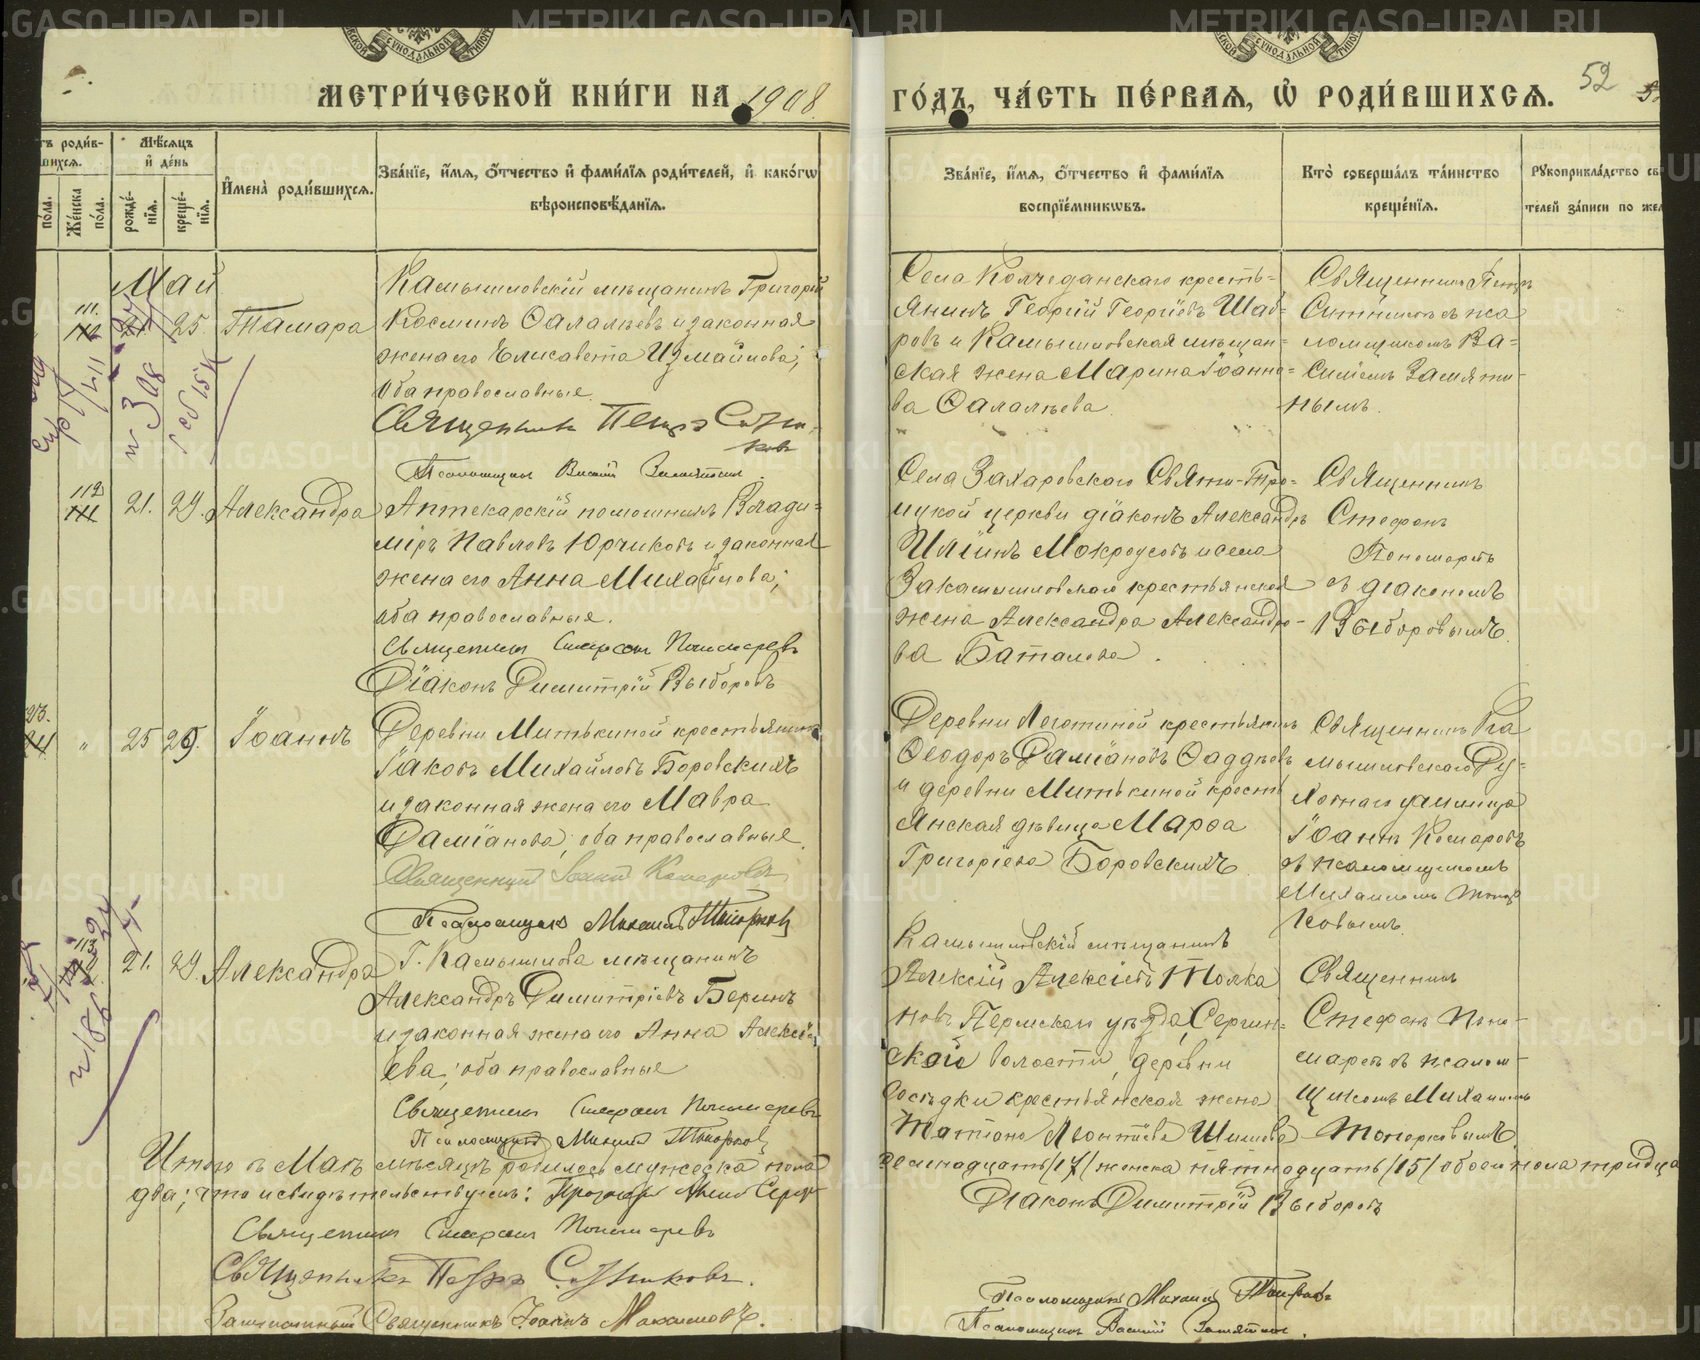 МЕТРИ́ЧЕСКОЙ КНИ́ГИ НА 1908
ГО́ДЪ, ЧА́СТЬ ПЕ́РВАЯ, Ѡ РОДИ́ВШИХСЯ.
52
Мѣсяцъ и день
Же́нска по́ла.
рожде́нія.
креще́нія.
Имена̀ роди́вшихся.
Зва́нїе, и́мя, о́тчество и фами́лїя роди́телей, и како́гѡ
вѣроисповѣ́данїя.
Зва́нїе, и́мя, о́тчество и фами́лїя
воспрїе́мникѡвъ.
Кто̀ соверша́лъ та́инство
креще́нїя.
Рукоприкла́дство св
телей за́писи по же
Май
111.
25.
Тамара
Камышловскій мѣщанинъ Григорій
Косминъ Ѳалалѣевъ и законная
жена его Елисавета Измайлова;
оба православные.
Священникъ Петръ Ситни-
ковъ
Псаломщикъ Василій Замятин
Села Колчеданскаго кресть-
янинъ Георгій Георгіевъ Шаб-
ровъ и Камышловская мѣщан-
ская жена Марина Іоанно-
ва Ѳалалѣева.
Священникъ Петръ
Ситниковъ съ пса
ломщикомъ Ва-
силіемъ Замяти-
нымъ.
112
21.
29.
Александра
Аптекарскій помошникъ Влади-
міръ Павловъ Юрчиковъ и законная
жена его Анна Михайлова;
оба православные.
Священникъ Стефанъ Пономаревъ
Діаконъ Димитрій Выборовъ
Села Захаровскаго Свято-Тро-
ицкой церкви діаконъ Александръ
Иліинъ Мокроусовъ и села
Закамышловскаго крестьянская
жена Александра Александро-
ва Баталова.
Священникъ
Стефанъ
Пономаревъ
съ діакономъ
Выборовымъ.
25
29.
Іоаннъ
Деревни Митькиной крестьянинъ
Іаковъ Михайловъ Боровскихъ
и законная жена его Мавра
Даміанова; оба православные.
Священникъ Іоаннъ Комаровъ
Псаломщикъ Михаилъ Топорковъ
Деревни Логотиной крестьянинъ
Ѳеодоръ Даміановъ Ѳаддѣевъ
и деревни Митькиной кресть
янская дѣвица Марѳа
Григоріева Боровскихъ.
Священникъ Ка
мышловскаго Ду-
ховнаго училища
Іоаннъ Комаровъ
съ псаломщикомъ
Михаиломъ Топор
ковымъ.
113
21.
29
Александра
Г. Камышлова мѣщанинъ
Александръ Димитріевъ Беринъ
и законная жена его Анна Алексі
ева; оба православные
Священникъ Стефанъ Пономаревъ
Псаломщикъ Михаилъ Топорковъ
Камышловскій мѣщанинъ
Алексій Алексіевъ Толка
новъ Пермскаго уѣзда, Сергин-
ской волости, деревни
крестьянская жена
Татіана Леонтіева Шишова
Священникъ
Стефанъ Поно-
маревъ съ псалом-
щикомъ Михаиломъ
Топорковымъ.
Итого въ Маѣ мѣсяцѣ родилось мужеска пола
семнадцать /17/ женска пятнадцать /15/ обоего пола тридца
два; что и свидѣтельствуемъ:
Священникъ Стефанъ Пономаревъ
Діаконъ Димитрій Выборовъ
Священникъ Петръ Ситниковъ.
Псаломщикъ Михаилъ Топорковъ
Священникъ Іоаннъ Максимовъ.
Псаломщикъ Василій Замятин.